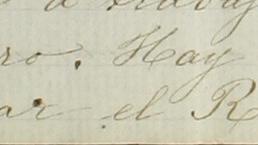 a trabaj
ro. Hay
ar el R